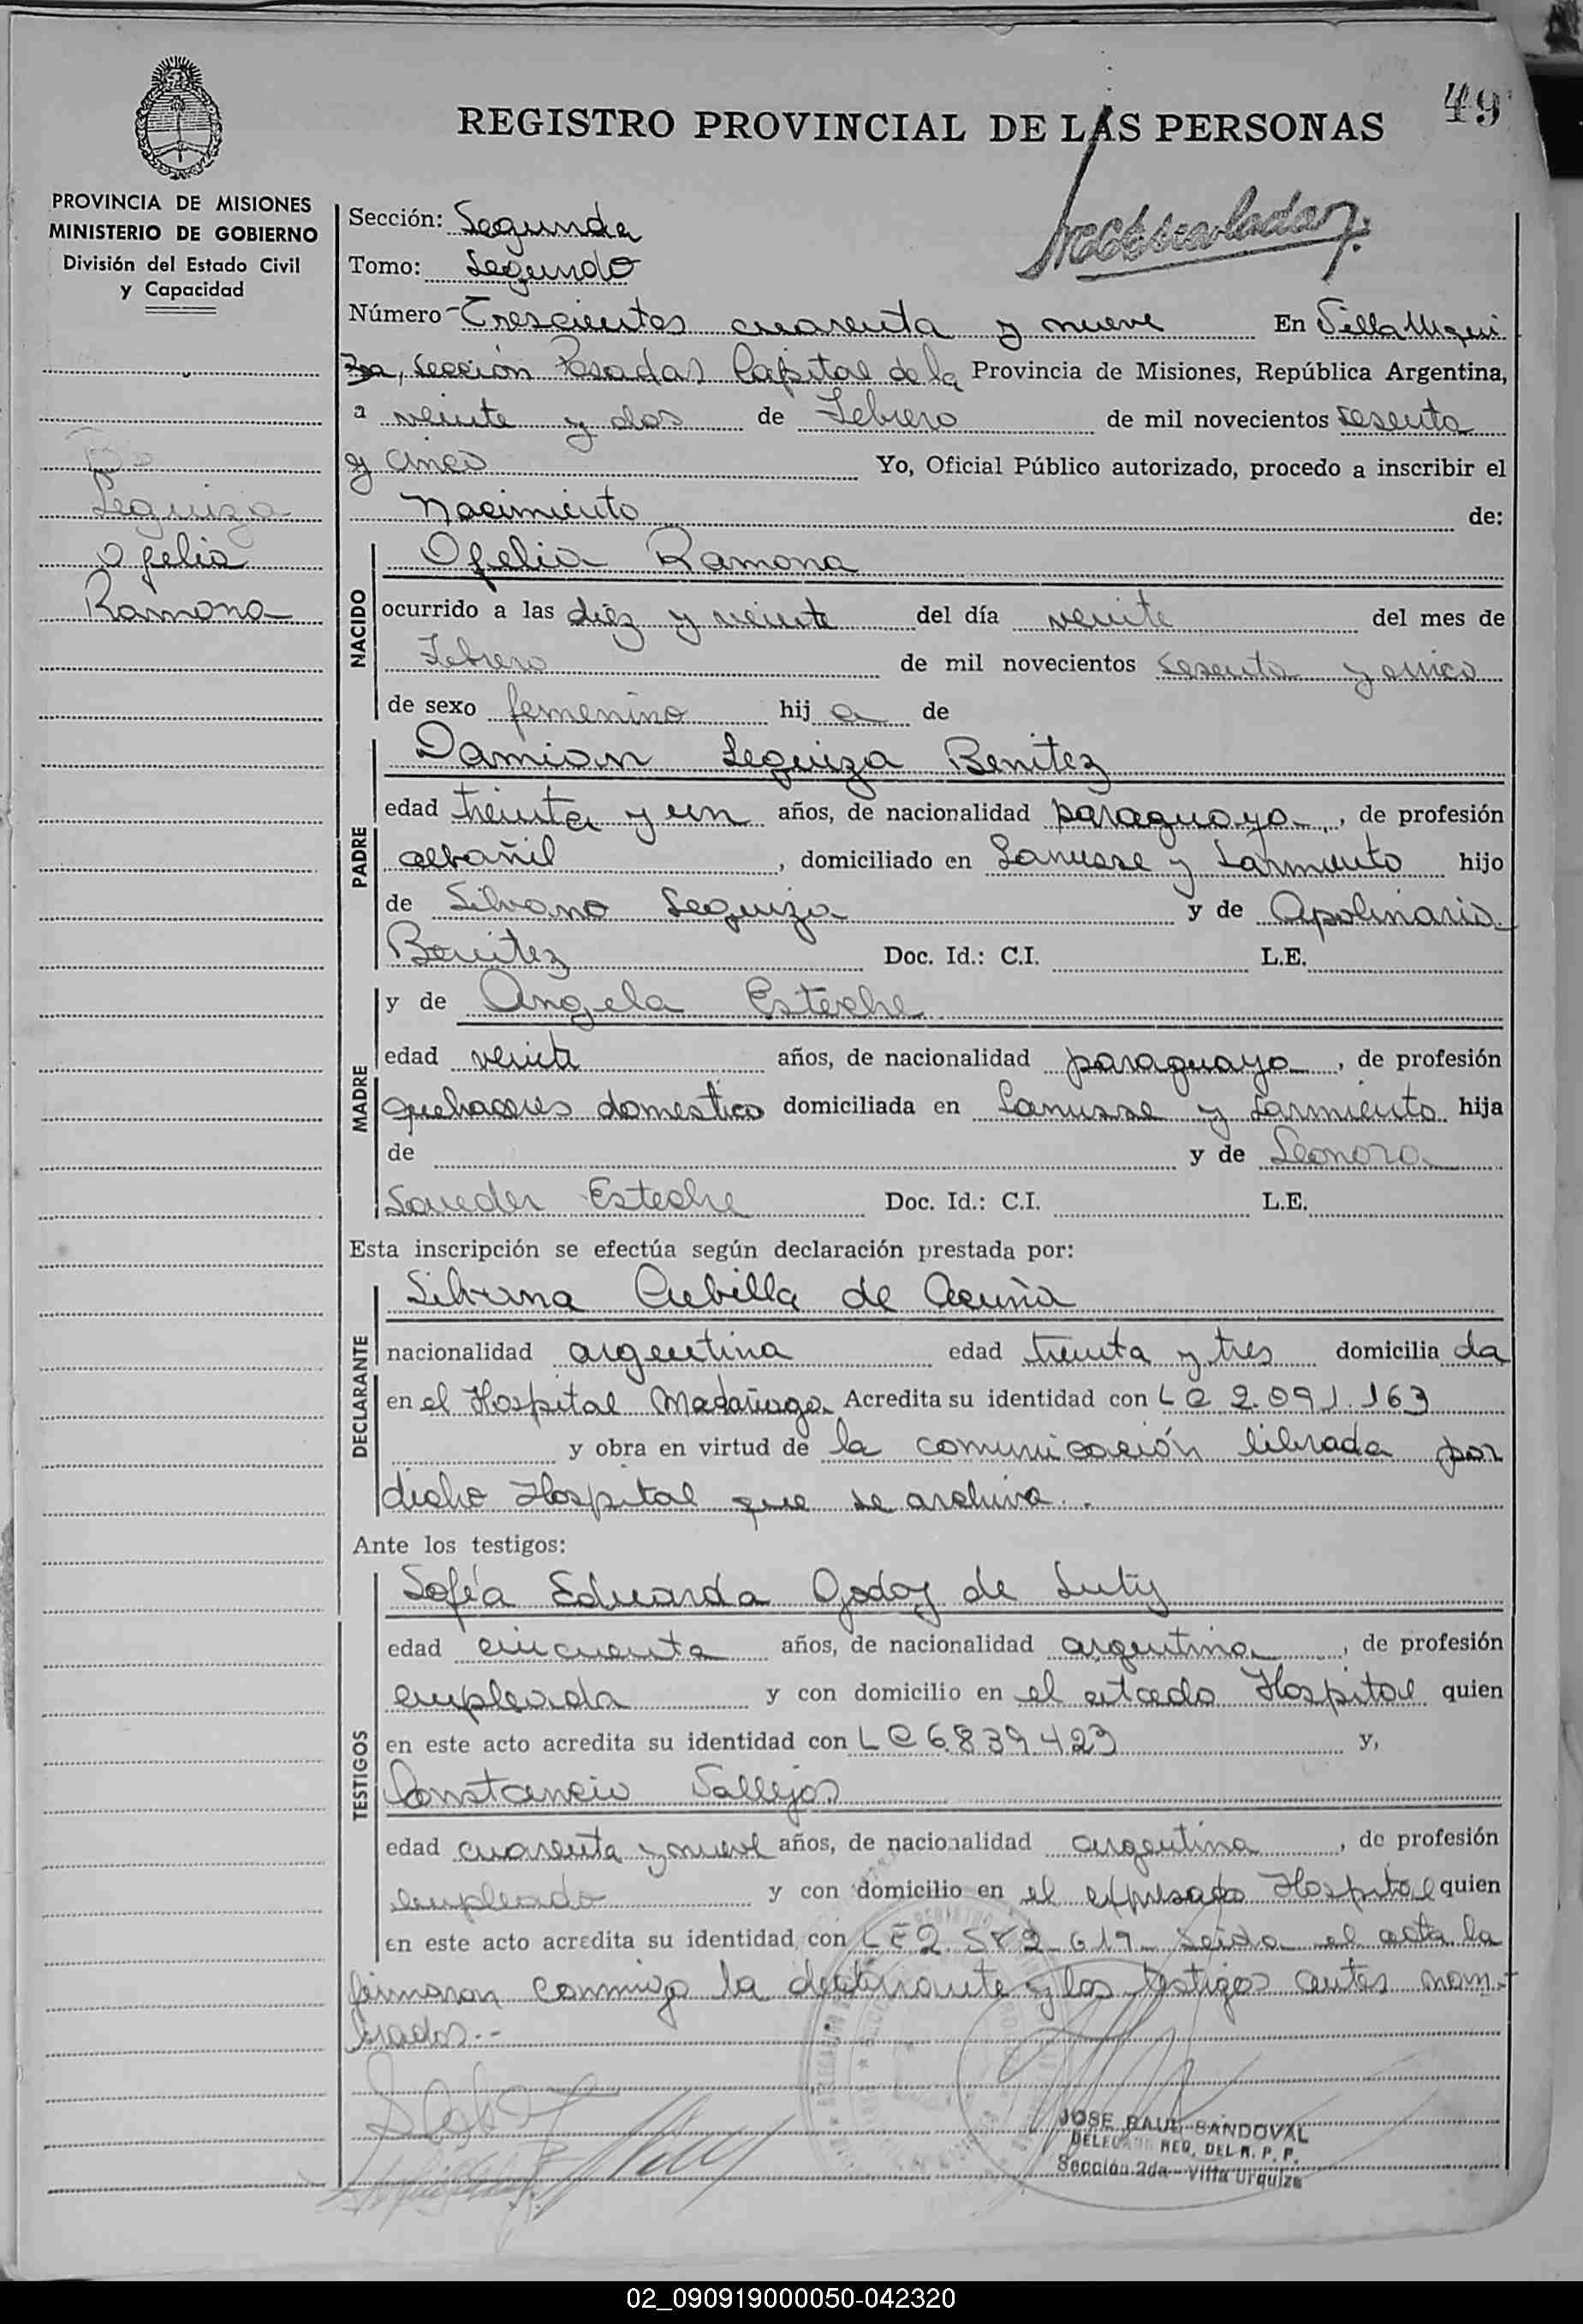 49
REGISTRO PROVINCIAL DE LAS PERSONAS
PROVINCIA DE MISIONES
MINISTERIO DE GOBIERNO
División del Estado Civil
y Capacidad
Leguiza
Ofelia
Ramona
Sección: Segunda
Tomo: Segundo
Número Trescientos cuarenta y nueve En Villa Urqui
za, Sección Posadas Capital de la Provincia de Misiones, República Argentina,
a veinte y dos de Febrero de mil novecientos sesenta
y cinco Yo, Oficial Público autorizado, procedo a inscribir el
Nacimiento de:
NACIDO
Ofelia Ramona
ocurrido a las diez y veinte del día veinte del mes de
Febrero de mil novecientos sesenta y cinco
de sexo femenino hij a de
PADRE
Damian Leguiza Benitez
edad treinta y un años, de nacionalidad paraguaya, de profesión
albañil, domiciliado en Lanusse y Sarmiento hijo
de Silvano Leguiza y de Apolinaria
Benitez Doc. Id.: C.I. L.E.
MADRE
y de Angela Esteche
edad veinte años, de nacionalidad paraguaya, de profesión
quehaceres domestico domiciliada en Lanusse y Sarmiento hija
de y de Leonora
Esteche Doc. Id.: C.I. L.E.
Esta inscripción se efectúa según declaración prestada por:
DECLARANTE
Cubilla de Acuña
nacionalidad argentina edad treinta y tres domicilia da
en el Hospital Madariaga Acredita su identidad con LC 2.091.163
y obra en virtud de la comunicación librada por
dicho Hospital que se archiva.
Ante los testigos:
TESTIGOS
Sofía Eduarda Godoy de
edad cincuenta años, de nacionalidad argentina, de profesión
empleada y con domicilio en el citado Hospital quien
en este acto acredita su identidad con LC 6.839.423 y,
Constancio Vallejos
edad cuarenta y nueve años, de nacionalidad argentina, de profesión
empleado y con domicilio en el expresado Hospital quien
en este acto acredita su identidad con LE 2.582.619 Leida el acta la
firmaran conmigo la declarante y los testigos antes nom-
brados.-
JOSE RAUL SANDOVAL
DELEGADO REG. DEL R. P. P.
Sección 2da - Villa Urquiza
02_090919000050-042320